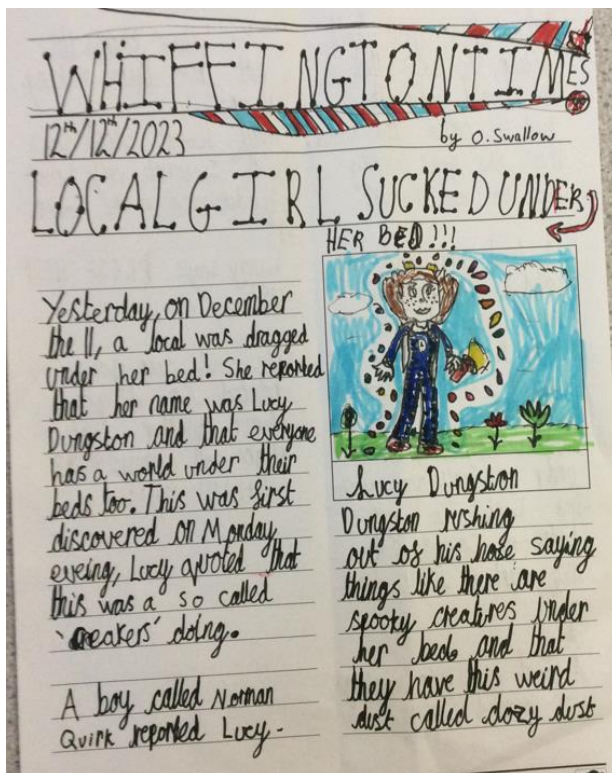 WHIFFINGTON TIMES
12th/12th/2023
by O. Swallow
LOCAL GIRL SUCKED UNDER
HER BED!!!
Yesterday, on December
the 11, a local was dragged
under her bed! She reported
that her name was Lucy
Dungston and that everyone
has a world under their
beds too. This was first
discovered on Monday
eveing, Lucy quoted that
this was a so called
'creakers' doing.
A boy called Norman
Quirk reported Lucy-
Lucy Dungston
Dungston rushing
out of his hose saying
things like there are
spooky creatures under
her bed and that
they have this weird
dust called dozy dust